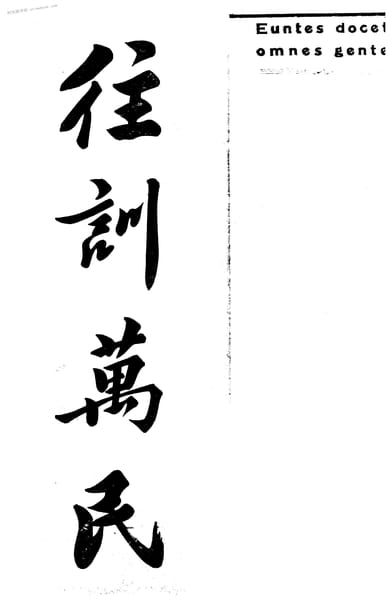 往訓萬民
Euntes docet
omnes gente